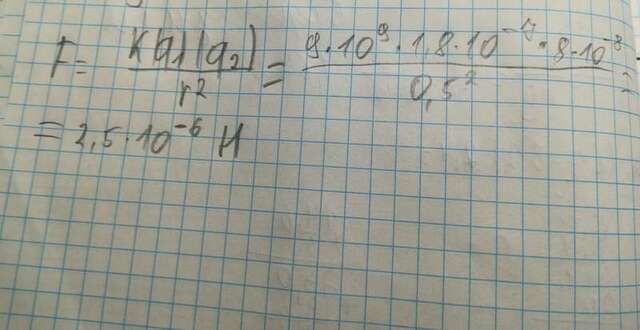 F = K|q₁||q₂| / r² = 9·10⁹·1,8·10⁻⁷·8·10⁻⁸ / 0,5² =
= 2,5·10⁻⁶ Н